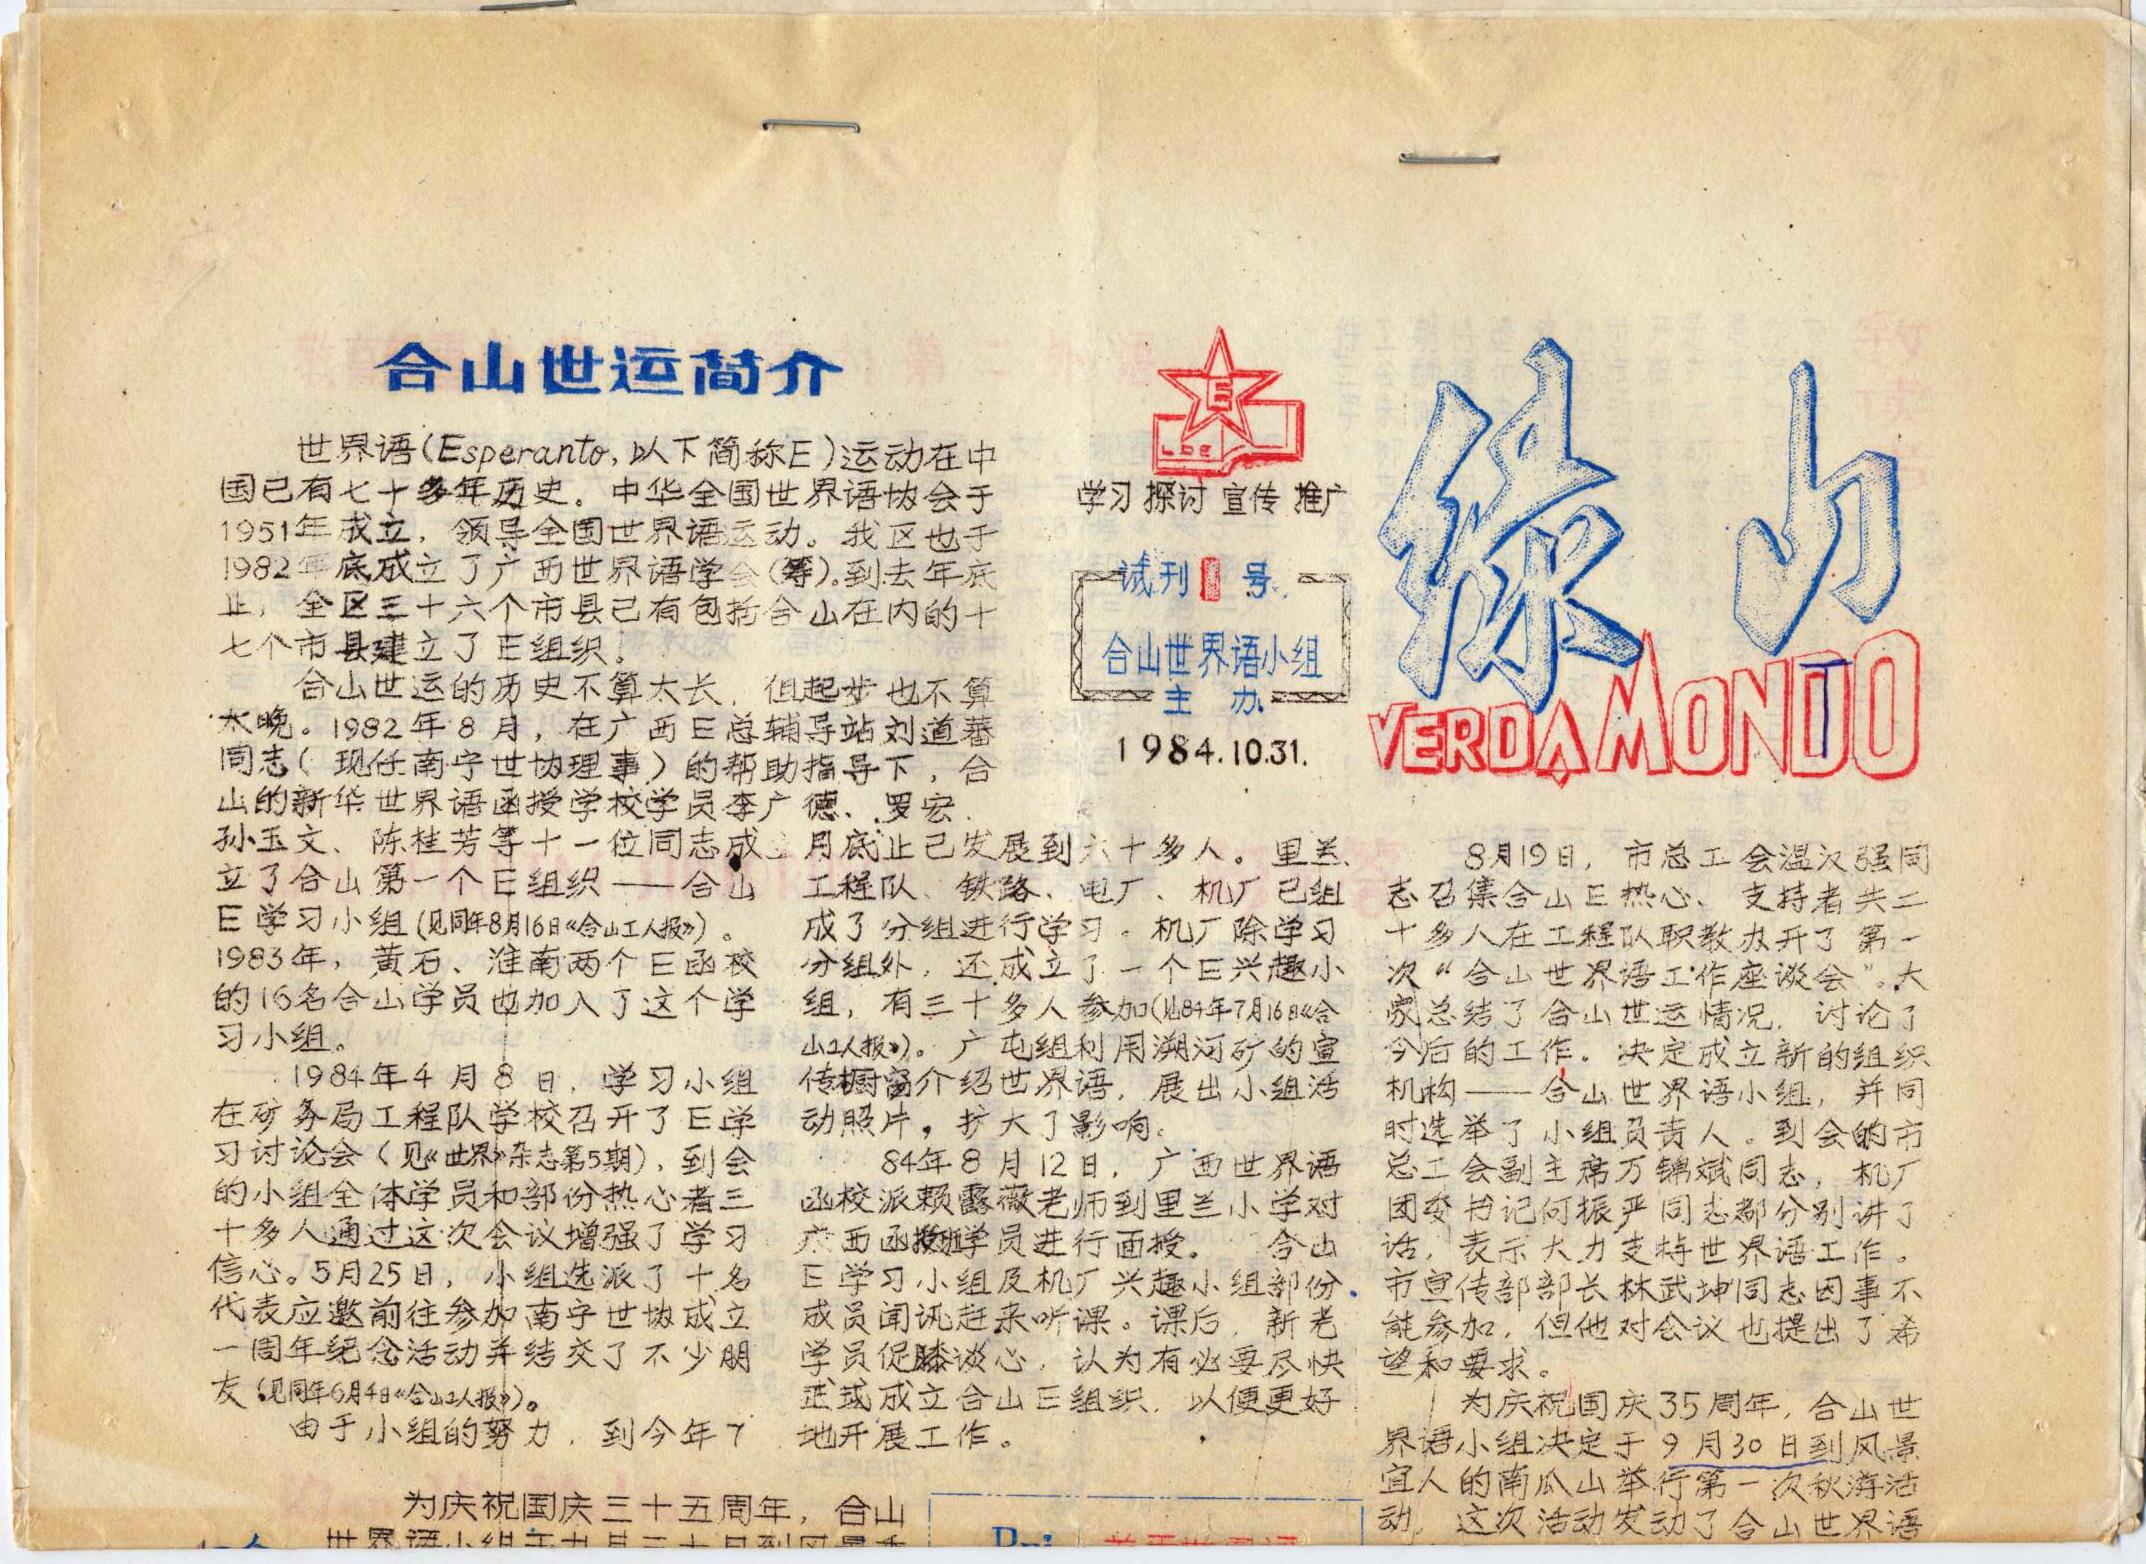 绿山
VERDA MONTO
E
LDE
学习 探讨 宣传 推广
试刊1号
合山世界语小组
主 办
1984.10.31.
合山世运简介
世界语(Esperanto,以下简称E)运动在中
国已有七十多年历史。中华全国世界语协会于
1951年成立,领导全国世界语运动。我区也于
1982年底成立了广西世界语学会(筹)。到去年底
止,全区三十六个市县已有包括合山在内的十
七个市县建立了E组织。
合山世运的历史不算太长,但起步也不算
太晚。1982年8月,在广西E总辅导站刘道蕃
同志(现任南宁世协理事)的帮助指导下,合
山的新华世界语函授学校学员李广德、罗宏、
孙玉文、陈桂芳等十一位同志成
立了合山第一个E组织——合山
E学习小组(见同年8月16日《合山工人报》)。
1983年,黄石、淮南两个E函校
的16名合山学员也加入了这个学
习小组。
1984年4月8日,学习小组
在矿务局工程队学校召开了E学
习讨论会(见《世界》杂志第5期),到会
的小组全体学员和部份热心者三
十多人通过这次会议增强了学习
信心。5月25日,小组选派了十名
代表应邀前往参加南宁世协成立
一周年纪念活动并结交了不少朋
友(见同年6月4日《合山工人报》)。
由于小组的努力,到今年7
月底止已发展到六十多人。里兰、
工程队、铁路、电厂、机厂已组
成了分组进行学习。机厂除学习
分组外,还成立了一个E兴趣小
组,有三十多人参加(见84年7月16日《合
山工人报》)。广屯组利用溯河矿的宣
传橱窗介绍世界语,展出小组活
动照片,扩大了影响。
84年8月12日,广西世界语
函校派赖露薇老师到里兰小学对
广西函授班学员进行面授。合山
E学习小组及机厂兴趣小组部份
成员闻讯赶来听课。课后,新老
学员促膝谈心,认为有必要尽快
正式成立合山E组织,以便更好
地开展工作。
8月19日,市总工会温汉强同
志召集合山E热心、支持者共二
十多人在工程队职教办开了第一
次“合山世界语工作座谈会”。大
家总结了合山世运情况,讨论了
今后的工作。决定成立新的组织
机构——合山世界语小组,并同
时选举了小组负责人。到会的市
总工会副主席万锦斌同志,机厂
团委书记何振严同志都分别讲了
话,表示大力支持世界语工作。
市宣传部部长林武坤同志因事不
能参加,但他对会议也提出了希
望和要求。
为庆祝国庆35周年,合山世
界语小组决定于9月30日到风景
宜人的南瓜山举行第一次秋游活
动,这次活动发动了合山世界语
为庆祝国庆三十五周年,合山
世界语小组于九月三十日到风景秀
Pri
关于世界语